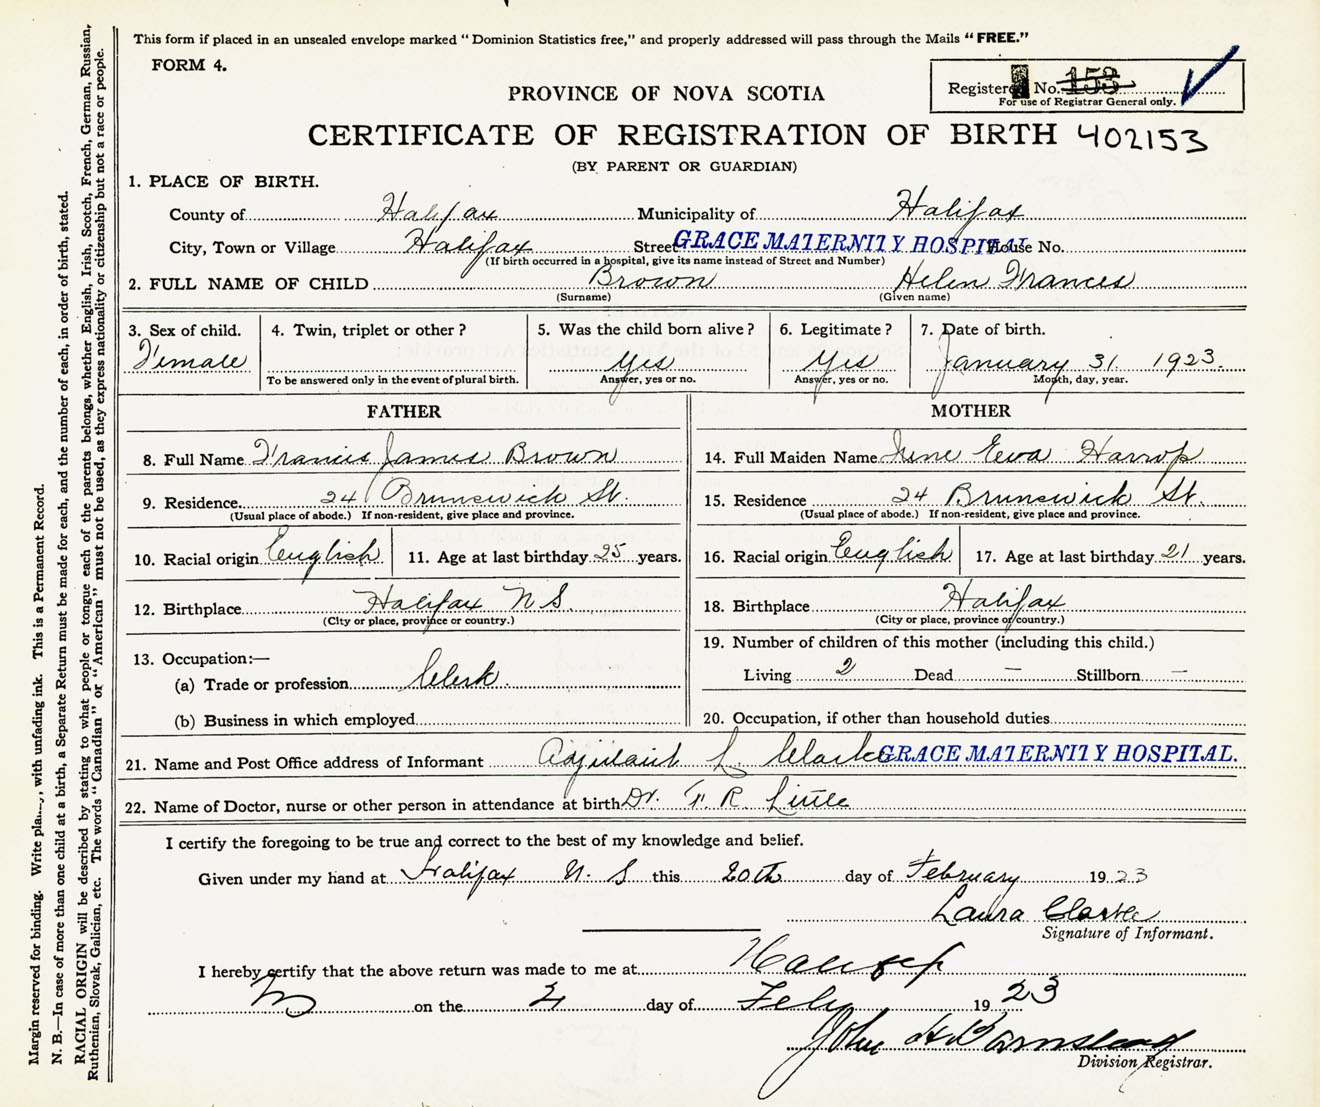 This form if placed in an unsealed envelope marked "Dominion Statistics free," and properly addressed will pass through the Mails "FREE."
FORM 4.
Registered No. 153
For use of Registrar General only.
PROVINCE OF NOVA SCOTIA
CERTIFICATE OF REGISTRATION OF BIRTH 402153
(BY PARENT OR GUARDIAN)
1. PLACE OF BIRTH.
County of Halifax Municipality of Halifax
City, Town or Village Halifax Street GRACE MATERNITY HOSPITAL House No.
(If birth occurred in a hospital, give its name instead of Street and Number)
2. FULL NAME OF CHILD Brown Helen Frances
(Surname) (Given name)
3. Sex of child. 4. Twin, triplet or other? 5. Was the child born alive? 6. Legitimate? 7. Date of birth.
Female yes yes January 31 1923.
To be answered only in the event of plural birth. Answer, yes or no. Answer, yes or no. Month, day, year.
FATHER MOTHER
8. Full Name Francis James Brown 14. Full Maiden Name June Eva Harrop
9. Residence 24 Brunswick St. 15. Residence 24 Brunswick St.
(Usual place of abode.) If non-resident, give place and province. (Usual place of abode.) If non-resident, give place and province.
10. Racial origin English 11. Age at last birthday 25 years. 16. Racial origin English 17. Age at last birthday 21 years.
12. Birthplace Halifax N S. 18. Birthplace Halifax
(City or place, province or country.) (City or place, province or country.)
19. Number of children of this mother (including this child.)
13. Occupation:—
(a) Trade or profession Clerk. Living 2 Dead — Stillborn —
(b) Business in which employed 20. Occupation, if other than household duties
21. Name and Post Office address of Informant Adjutant L Clarke GRACE MATERNITY HOSPITAL.
22. Name of Doctor, nurse or other person in attendance at birth Dr. F. R. Little
I certify the foregoing to be true and correct to the best of my knowledge and belief.
Given under my hand at Halifax N. S this 20th day of February 1923
Laura Clarke
Signature of Informant.
I hereby certify that the above return was made to me at
on the day of Feby 1923
John H Barnstead
Division Registrar.
Margin reserved for binding. Write , with unfading ink. This is a Permanent Record.
N. B.—In case of more than one child at a birth, a Separate Return must be made for each, and the number of each, in order of birth, stated.
RACIAL ORIGIN will be described by stating to what people or tongue each of the parents belongs, whether English, Irish, Scotch, French, German, Russian,
Ruthenian, Slovak, Galician, etc. The words "Canadian" or "American" must not be used, as they express nationality or citizenship but not a race or people.